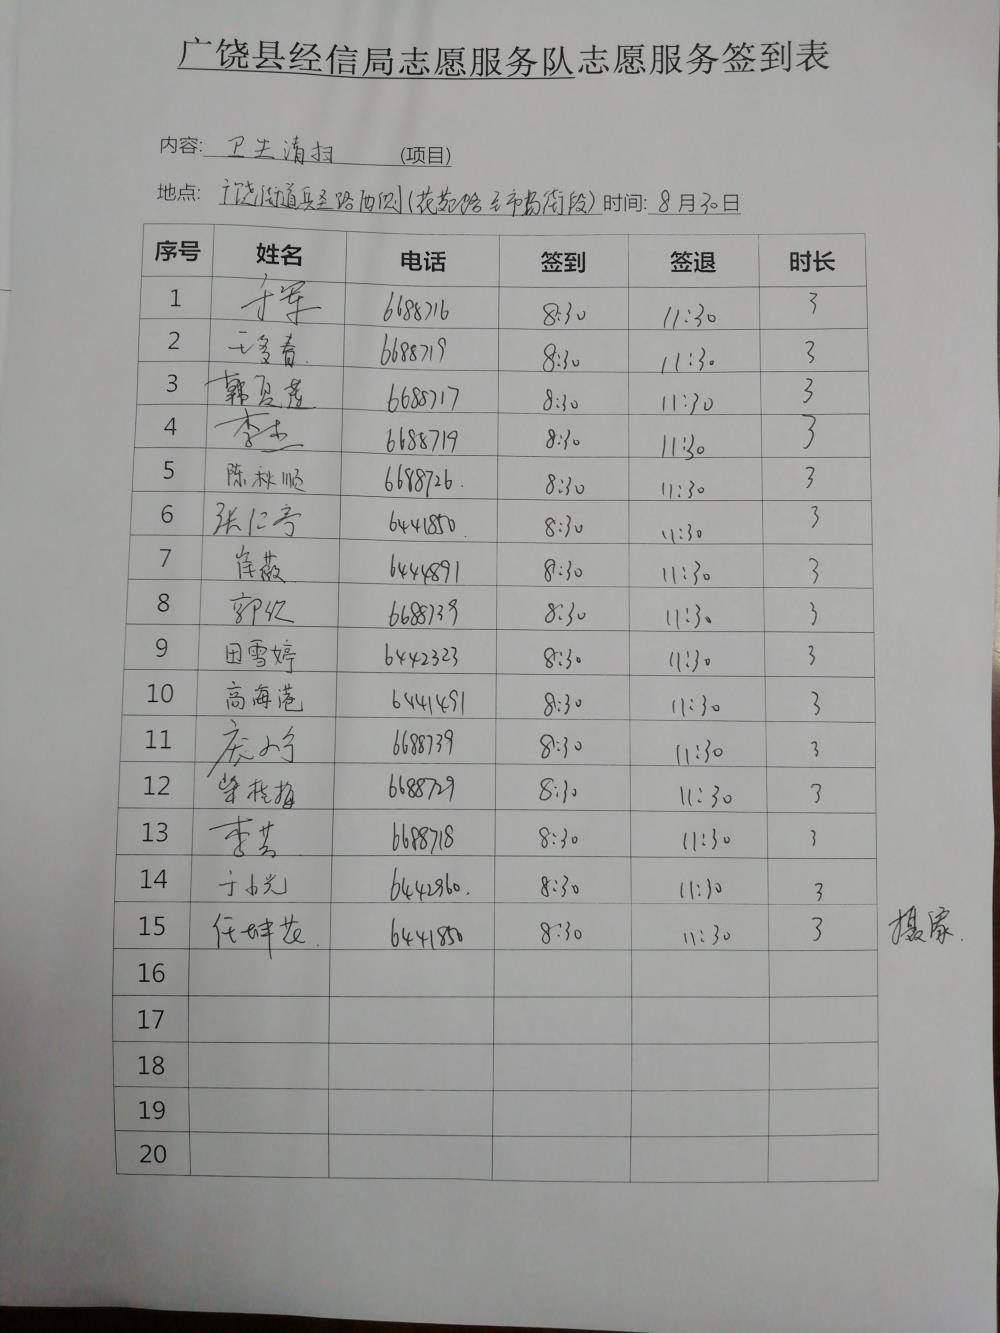 广饶县经信局志愿服务队志愿服务签到表
内容: 卫生清扫 (项目)
地点: 广饶街道兵圣路西侧(花苑路至市场街段) 时间: 8月30日
序号 姓名 电话 签到 签退 时长
1 6688716 8:30 11:30 3
2 6688719 8:30 11:30 3
3 6688717 8:30 11:30 3
4 李杰 6688719 8:30 11:30 3
5 陈秋顺 6688726. 8:30 11:30 3
6 张仁亭 6441850. 8:30 11:30 3
7 崔薇 6444891 8:30 11:30 3
8 6688739 8:30 11:30 3
9 田雪婷 6442323 8:30 11:30 3
10 高海港 6441491 8:30 11:30 3
11 6688739 8:30 11:30 3
12 6688729 8:30 11:30 3
13 6688718 8:30 11:30 3
14 于小光 6442960. 8:30 11:30 3
15 任坤花. 6441850 8:30 11:30 3
16
17
18
19
20